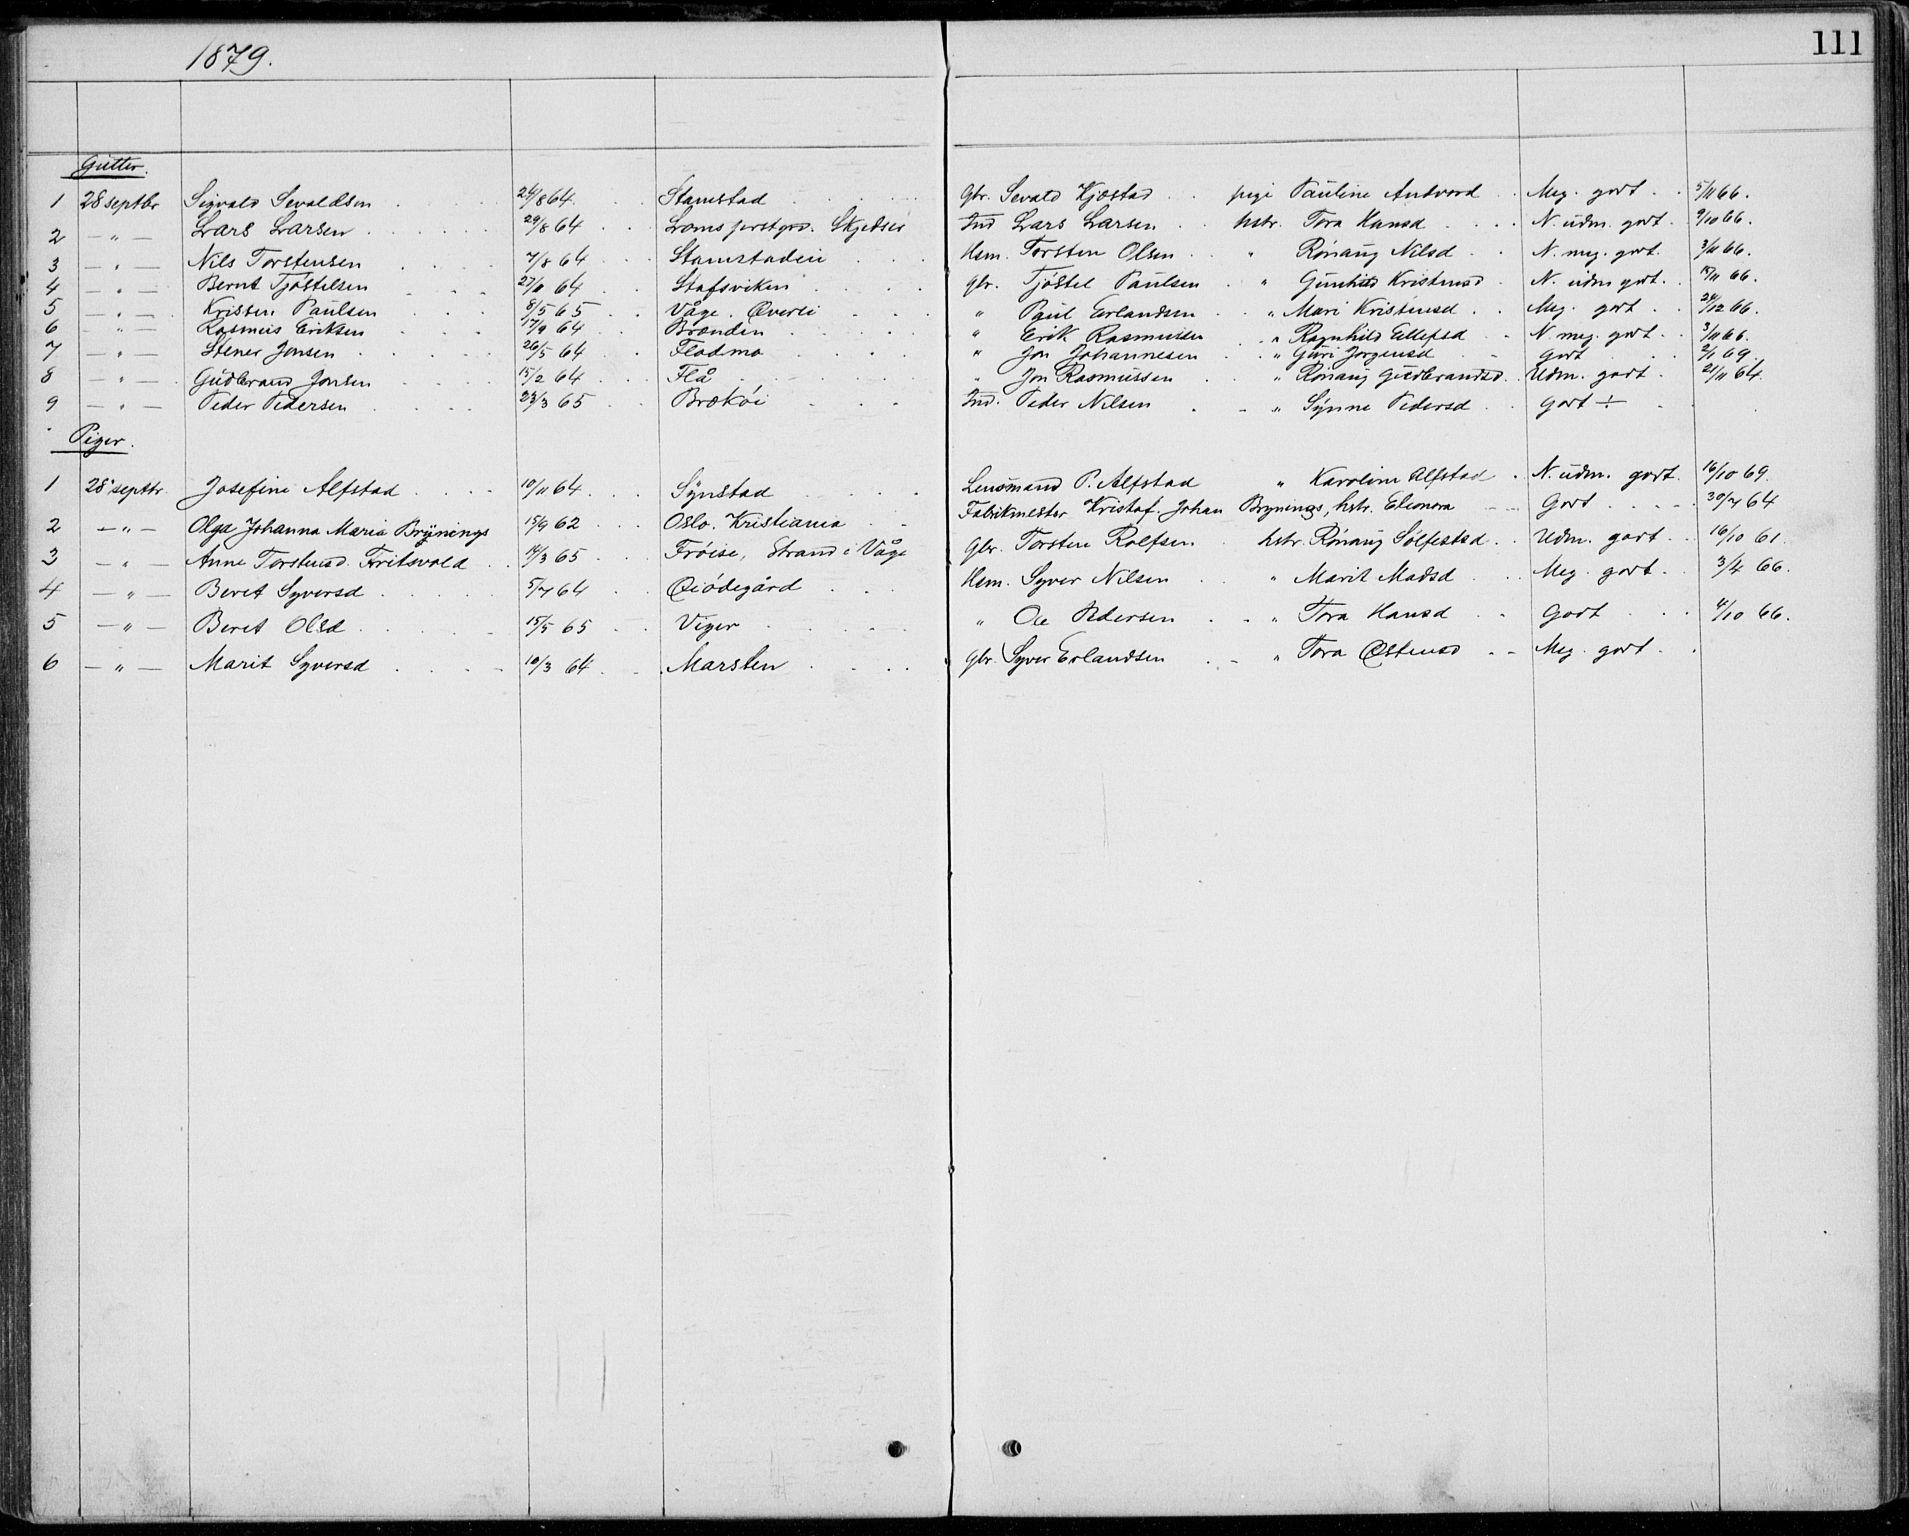 1879.
111
Gutter.
1 28 septbr Sigvald Sevaldsen 24/8 64. Stamstad Gbr. Sevald Kjæstad pige Pauline Andvord Meg. godt 5/11 66.
2 — " — Lars Larsen 29/8 64 Loms prstgrd. Skjedser Ind Lars Larsen hstr. Tora Hansd N. udm. godt 9/10 66.
3 — " — Nils Torstensen 7/8 64 Stamstadeie Hsm. Torsten Olsen " Rønaug Nilsd N. meg. godt. 3/11 66.
4 — " — Bernt Tjøstelsen 64 Stafsviken gbr. Tjøstel Paulsen " Gunhild Kristensd N. udm godt. 15/11 66.
5 — " — Kristen Paulsen 8/5 65 Våge. Øverli " Paul Erlandsen " Mari Kristensd Meg. godt 66.
6 — " — Rasmus Eriksen 17/9 64 Brænden " Erik Rasmussen " Ragnhild Ellefsd N meg. godt 3/11 66.
7 — " — Stener Jonsen 26/5 64 Flodmo " Jon Johannesen " Guri Jorgensd Godt 2/1 69.
8 — " — Gudbrand Jonsen 15/2 64 Flå " Jon Rasmussen " Rønaug Gudbrandsd. Udm. godt 21/11 64.
9 — " — Peder Pedersen 23/3 65 Brækøi Ind. Peder Nilsen " Synne Pedersd Godt ÷
Piger.
1 28 septbr. Josefine Alfstad 10/11 64 Synstad Lensmand P. Alfstad " Karoline Alfstad N. udm. godt. 16/10 69.
2 — " — Olga Johanna Maria Brynings 15/9 62 Oslo. Kristiania Fabrikmester Kristof. Johan Brynings, hstr. Eleonora Godt 30/7 64
3 — " — Anne Torstensd. Fritsvold 14/3 65 Frøise, Strand i Våge Gbr. Torsten Rolfsen hstr. Rønaug Sølfestsd Udm. godt 16/10 61.
4 — " — Beret Syversd 5/7 64 Øiødegård Hsm. Syver Nilsen " Marit Madsd Meg. godt. 3/4 66.
5 — " — Beret Olsd 15/5 65 Viger " Ole Pedersen " Tora Hansd Godt 4/10 66.
6 — " — Marit Syversd 10/3 64 Marsten gbr. Syver Erlandsen " Tora Østensd Meg. godt.